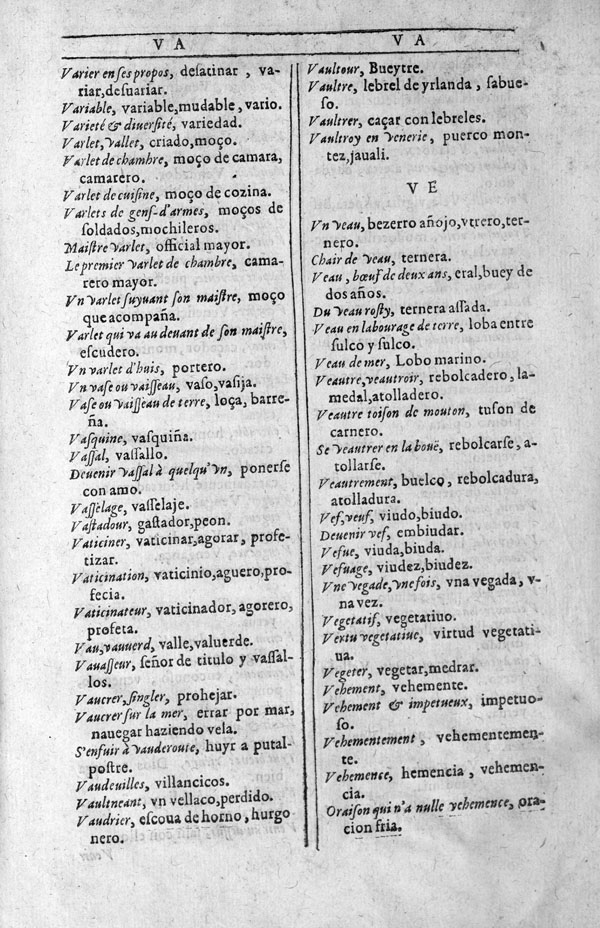 V A
Varier en ses propos, desatinar, va-
riar, desuariar.
Variable, variable, mudable, vario.
Varieté & diuersité, variedad.
Varlet, vallet, criado, moço.
Varlet de chambre, moço de camara,
camarero.
Varlet de cuisine, moço de cozina.
Varlets de gens-d'armes, moços de
soldados, mochileros.
Maistre varlet, official mayor.
Le premier varlet de chambre, cama-
rero mayor.
Vn varlet suyuant son maistre, moço
que acompaña.
Varlet qui va au deuant de son maistre,
escudero.
Vn varlet d'huis, portero.
Vn vase ou vaisseau, vaso, vasija.
Vase ou vaisseau de terre, loça, barre-
ña.
Vasquine, vasquiña.
Vassal, vassallo.
Deuenir vassal à quelqu'vn, ponerse
con amo.
Vasselage, vasselaje.
Vastadour, gastador, peon.
Vaticiner, vaticinar, agorar, profe-
tizar.
Vaticination, vaticinio, aguero, pro-
fecia.
Vaticinateur, vaticinador, agorero,
profeta.
Vau, vauuerd, valle, valuerde.
Vauasseur, señor de titulo y vassal-
los.
Vaucrer, singler, prohejar.
Vaucrer sur la mer, errar por mar,
nauegar haziendo vela.
S'enfuir à vauderoute, huyr a putal-
postre.
Vaudeuilles, villancicos.
Vaultneant, vn vellaco, perdido.
Vaudrier, escoua de horno, hurgo
nero.
V A
Vaultour, Bueytre.
Vaultre, lebrel de yrlanda, sabue-
so.
Vaultrer, caçar con lebreles.
Vaultroy en venerie, puerco mon-
tez, jauali.
V E
Vn veau, bezerro añojo, vtrero, ter-
nero.
Chair de veau, ternera.
Veau, bœuf de deux ans, eral, buey de
dos años.
Du veau rosty, ternera assada.
Veau en labourage de terre, loba entre
sulco y sulco.
Veau de mer, Lobo marino.
Veautre, veautroir, rebolcadero, la-
medal, atolladero.
Veautre toison de mouton, tuson de
carnero.
Se veautrer en la bouë, rebolcarse, a-
tollarse.
Veautrement, buelco, rebolcadura,
atolladura.
Vef, veuf, viudo, biudo.
Deuenir vef, embiudar.
Vefue, viuda, biuda.
Vefuage, viudez, biudez.
Vne vegade, vne fois, vna vegada, v-
na vez.
Vegetatif, vegetatiuo.
Vertu vegetatiue, virtud vegetati-
ua.
Vegeter, vegetar, medrar.
Vehement, vehemente.
Vehement & impetueux, impetuo-
so.
Vehementement, vehementemen-
te.
Vehemence, hemencia, vehemen-
cia.
Oraison qui n'a nulle vehemence, ora-
cion fria.